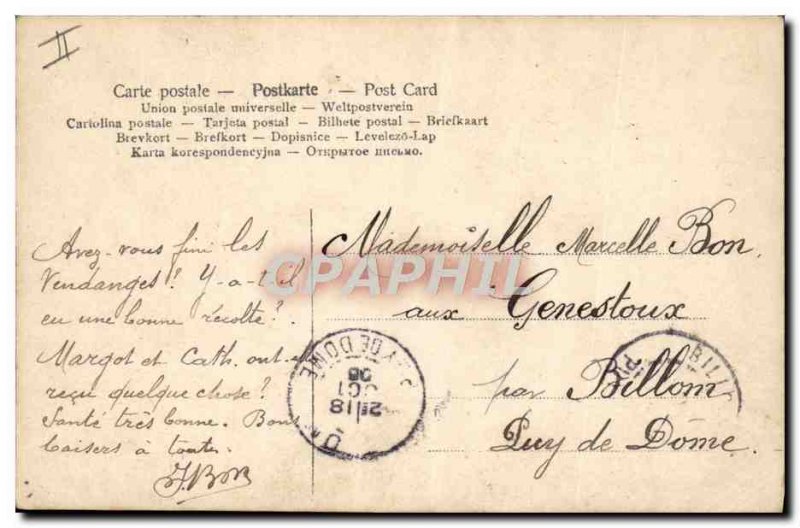 II
Carte postale — Postkarte — Post Card
Union postale universelle — Weltpostverein
Cartolina postale — Tarjeta postal — Bilhete postal — Briefkaart
Brevkort — Brefkort — Dopisnice — Levelező-Lap
Karta korespondencyjna — Открытое письмо.
Avez-vous fini les
Vendanges? Y-a-t-il
eu une bonne récolte?
Margot et Cath. ont-elles
reçu quelque chose?
Santé très bonne. Bons
baisers à toute.
J. Bon
Mademoiselle Marcelle Bon.
aux Genestoux
par Billom
Puy de Dôme.
CPAPHIL
PUY DE DOME
21 18
OCT
06
BILLOM